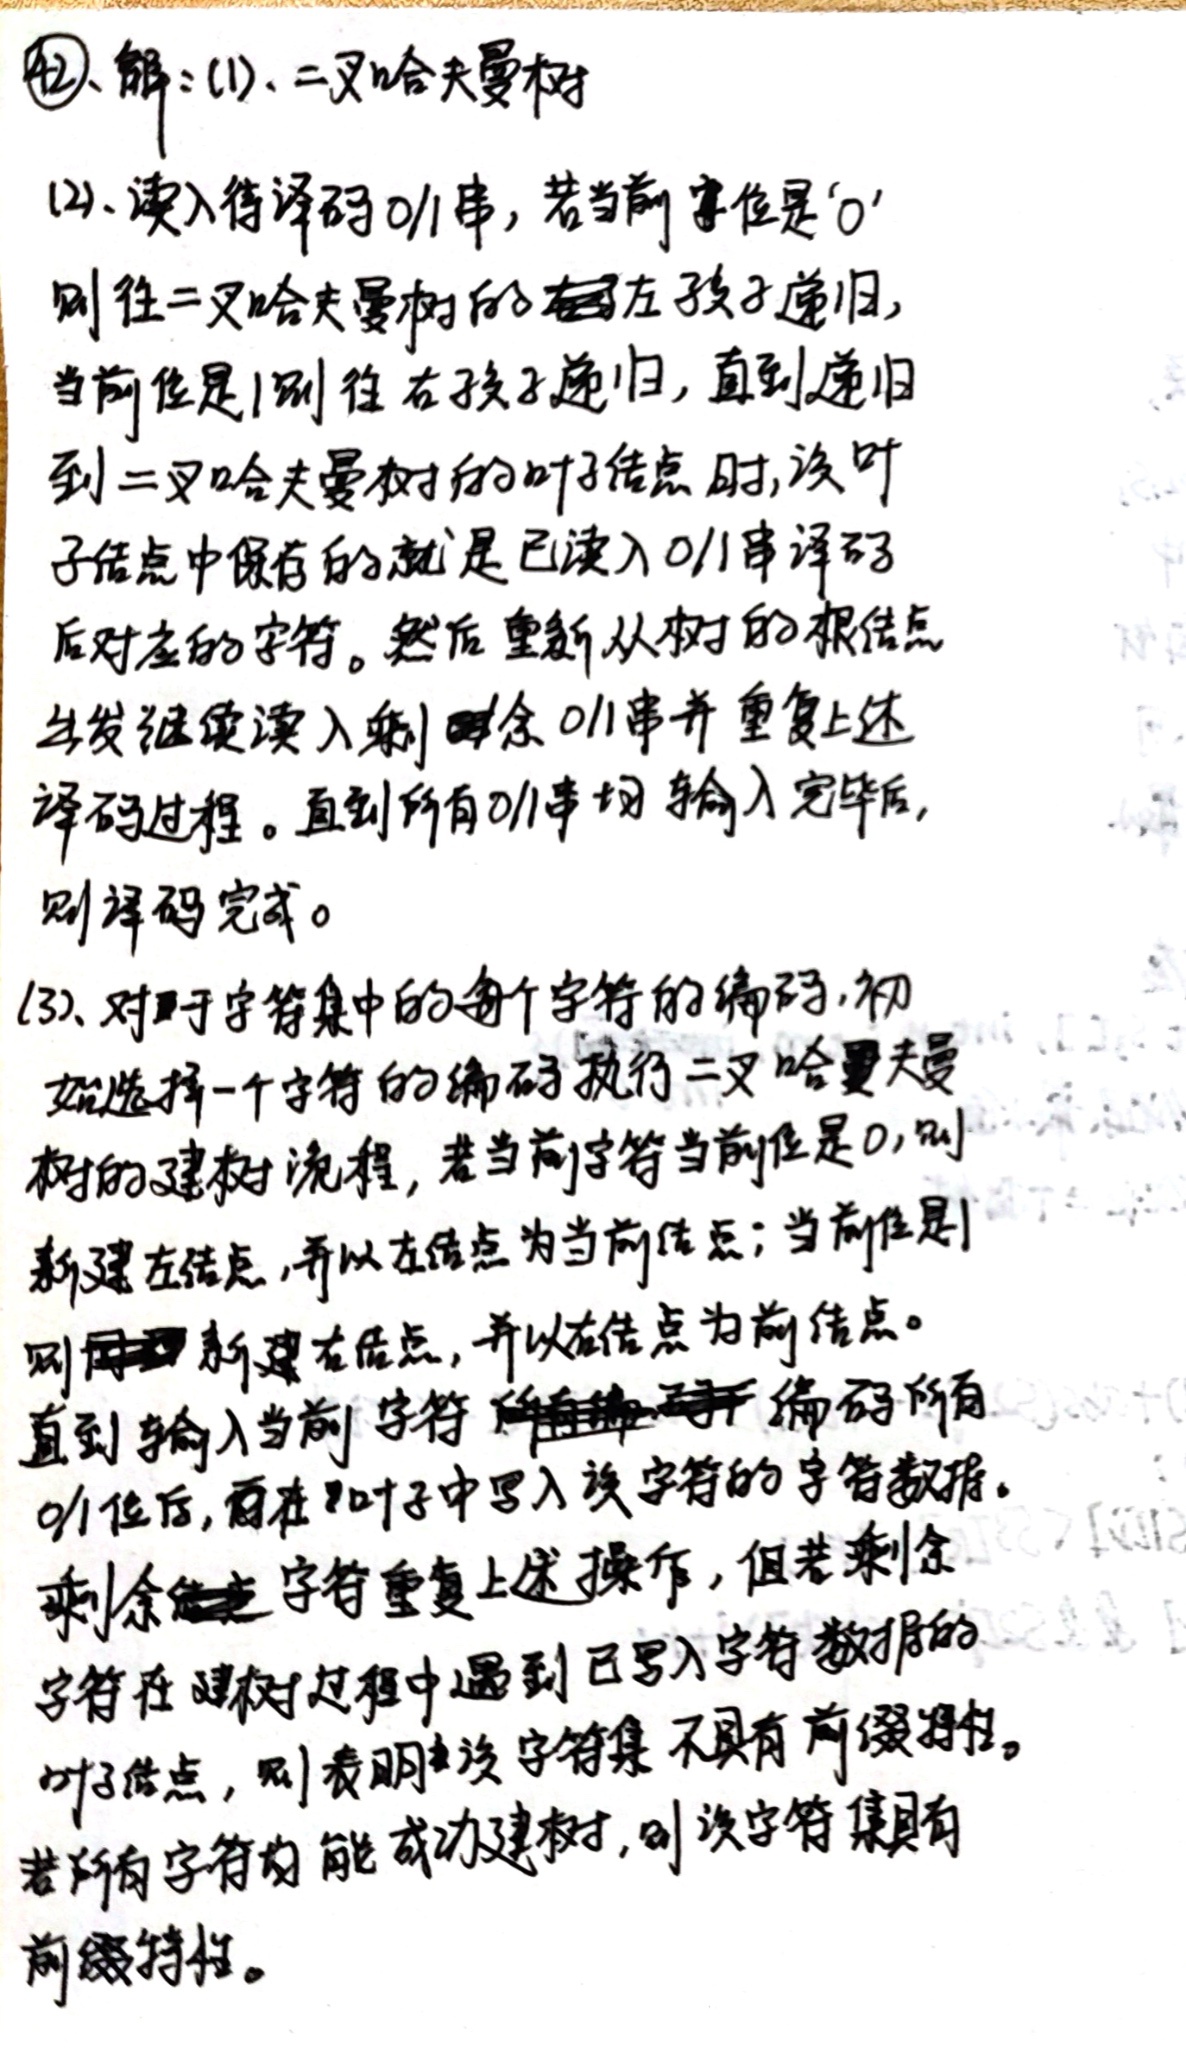 42、解:(1)、二叉哈夫曼树
(2)、读入待译码0/1串,若当前字位是'0'
则往二叉哈夫曼树的左孩子递归,
当前位是1则往右孩子递归,直到递归
到二叉哈夫曼树的叶子结点时,该叶
子结点中保存的就是已读入0/1串译码
后对应的字符。然后重新从树的根结点
出发继续读入剩余0/1串并重复上述
译码过程。直到所有0/1串均输入完毕后,
则译码完成。
(3)、对于字符集中的每个字符的编码,初
始选择一个字符的编码执行二叉哈夫曼
树的建树流程,若当前字符当前位是0,则
新建左结点,并以左结点为当前结点;当前位是1
则新建右结点,并以右结点为前结点。
直到输入当前字符编码所有
0/1位后,再在叶子中写入该字符的字符数据。
剩余字符重复上述操作,但若剩余
字符在建树过程中遇到已写入字符数据的
叶子结点,则表明该字符集不具有前缀特性。
若所有字符均能成功建树,则该字符集具有
前缀特性。